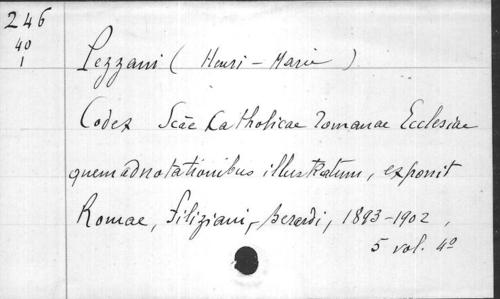 246
40
1
Pezzani (Henri-Marie)
Codex Scae Catholicae romanae Ecclesiae
quem adnotationibus illustratum, exposuit
Romae, Filiziani, Berardi, 1893-1902,
5 vol. 4º